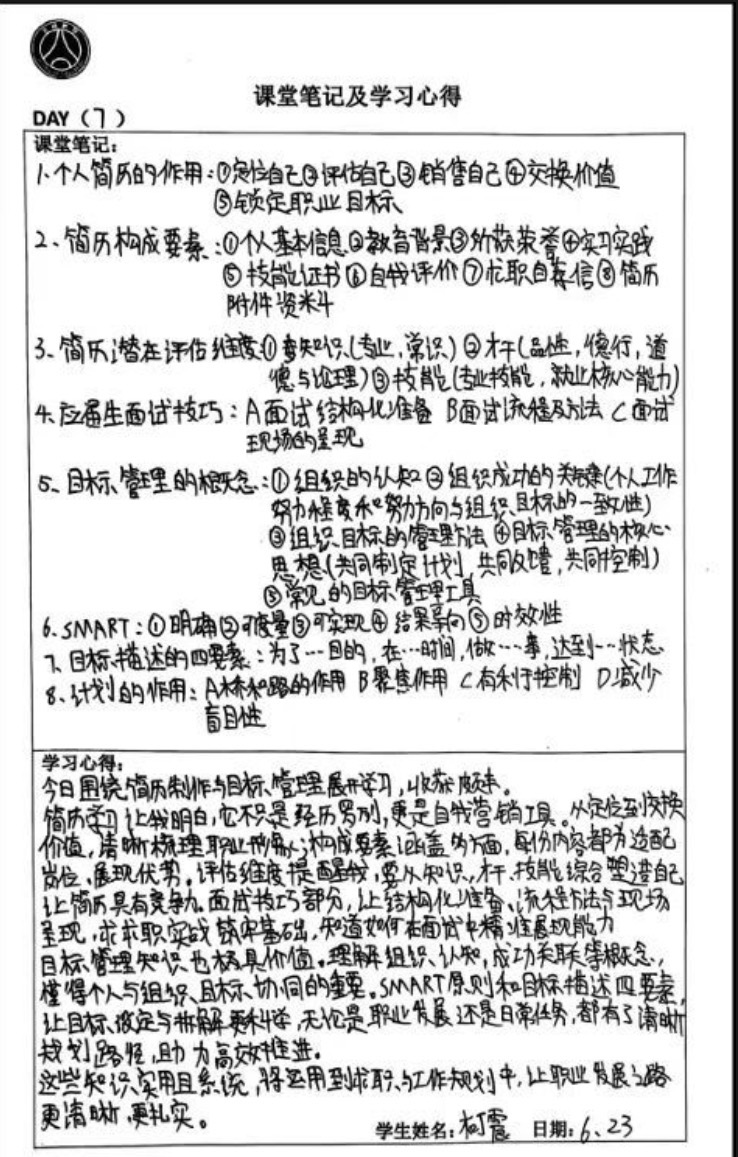 课堂笔记及学习心得
DAY（7）
课堂笔记：
1、个人简历的作用：①定位自己②评估自己③销售自己④交换价值
⑤锁定职业目标
2、简历构成要素：①个人基本信息②教育背景③所获荣誉④实习实践
⑤技能证书⑥自我评价⑦求职自荐信⑧简历
附件资料
3、简历潜在评估维度①知识(专业,常识)②才干(品性,德行,道
德与伦理)③技能(专业技能,就业核心能力)
4、应届生面试技巧：A面试结构化准备 B面试流程及方法 C面试
现场的呈现
5、目标管理的概念：①组织的认知②组织成功的关键(个人工作
努力程度和努力方向与组织目标的一致性)
③组织目标的管理方法 ④目标管理的核心
思想(共同制定计划,共同反馈,共同控制)
⑤常见的目标管理工具
6、SMART：①明确②可度量③可实现④结果导向⑤时效性
7、目标描述的四要素：为了…目的,在…时间,做…事,达到…状态
8、计划的作用：A桥和路的作用 B聚焦作用 C有利于控制 D减少
盲目性
学习心得：
今日围绕简历制作与目标管理展开学习,收获颇丰。
简历学习让我明白,它不只是经历罗列,更是自我营销工具。从定位到交换
价值,清晰梳理职业所需;构成要素涵盖多方面,每份内容都为适配
岗位、展现优势。评估维度提醒我,要从知识、才干、技能综合塑造自己
让简历具有竞争力。面试技巧部分,让结构化准备、流程方法与现场
呈现,求求职实战筑牢基础,知道如何在面试中精准展现能力
目标管理知识也极具价值。理解组织认知,成功关联等概念,
懂得个人与组织目标协同的重要。SMART原则和目标描述四要素,
让目标设定与拆解更科学,无论是职业发展还是日常任务,都有了清晰
规划路径,助力高效推进。
这些知识实用且系统,将运用到求职与工作规划中,让职业发展之路
更清晰、更扎实。
学生姓名：柯震 日期：6、23